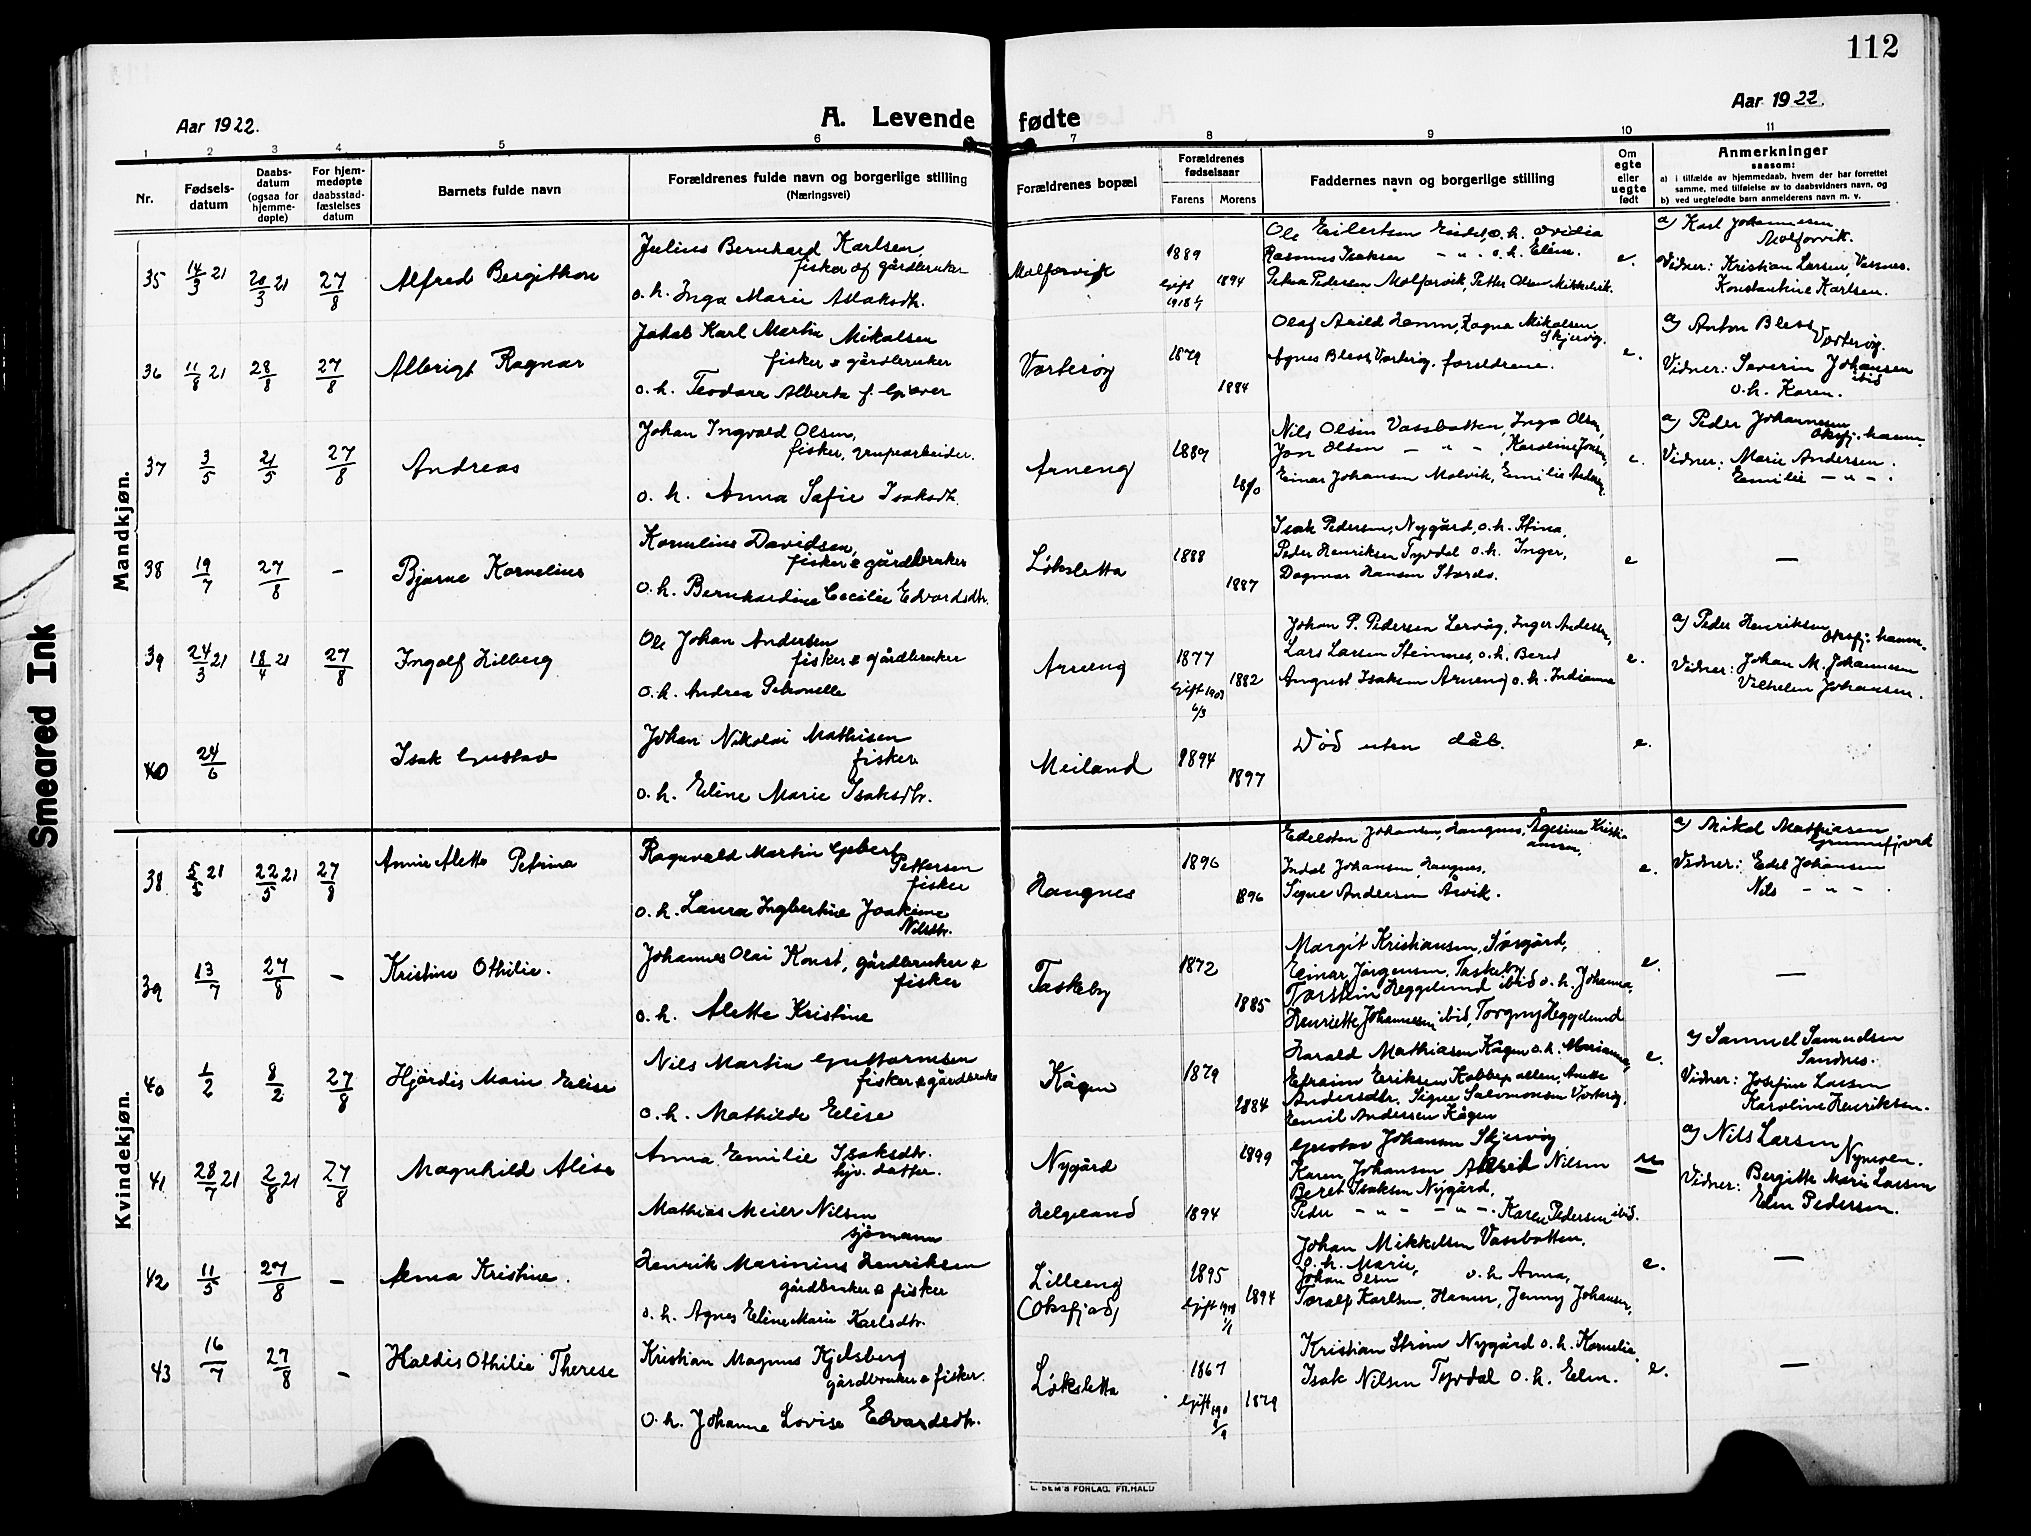 112
Aar 1922.
A. Levende fødte
Aar 1922.
1 2 3 4 5 6 7 8 9 10 11
Nr.
Fødsels-
datum
Daabs-
datum
(ogsaa for
hjemme-
døpte)
For hjem-
medøpte
daabsstad-
fæstelses
datum
Barnets fulde navn
Forældrenes fulde navn og borgerlige stilling
(Næringsvei)
Forældrenes bopæl
Forældrenes
fødselsaar
Farens Morens
Faddernes navn og borgerlige stilling
Om
egte
eller
uegte
født
Anmerkninger
saasom:
a) i tilfælde av hjemmedaab, hvem der har forrettet
samme, med tilføielse av to daabsvidners navn, og
b) ved uegtefødte barn anmelderens navn m. v.
Mandkjøn.
35 14/3 21 20/3 21 27/8 Alfred Bergithon
Julius Bernhard Karlsen,
fisker og gårdbruker
o. h. Inga Marie Aslaksdtr.
Molforvik
1889
Gift
1918
1894
Ole Eilertsen o. h. Ovidia
Rasmus Isaksen - " - o. h. Eline.
Petra Pedersen Molforvik, Petter Olsen
e.
a) Karl Johannesen
Molforvik.
Vidner: Kristian Larsen,
Konstantine Karlsen.
36 11/8 21 28/8 27/8 Albrigt Ragnar
Jakob Karl Martin Mikalsen
fisker & gårdbruker
o. h. Teodora Alberta f. Giæver
Vorterøy
1879
1884
Olaf Arild Hamn, Ragna Mikalsen
Skjervøy.
Agnes Bless Vorterøy. foreldrene.
e.
a) Anton Bless
Vorterøy.
Vidner: Severin Johansen
ibid
o. h. Karen.
37 3/5 21/5 27/8 Andreas
Johan Ingvald Olsen,
fisker, grupearbeider.
o. h. Anna Sofie Isaksdtr.
Arneng
1889
Nils Olsen Vassbotten, Inga Olsen,
Jon Olsen - " - , Karoline Jonsen,
Einar Johansen Molvik, Emilie
e.
a) Peder Johannesen
Oksfj. hamn.
Vidner: Marie Andersen.
Emilie - " - .
38 19/7 27/8 - Bjarne Kornelius
Kornelius Davidsen,
fisker & gårdbruker
o. h. Bernhardine Cecilie Edvardsdtr.
Løksletta
1888
1887
Isak Pedersen, Nygård, o. h. Stina,
Peder Henriksen Tyvdal o. h. Inger,
Dagmar Hansen Stords.
e
—
39 24/3 21 18/4 21 27/8 Ingolf Hilberg
Ole Johan Andersen
fisker & gårdbruker
o. h. Andrea Petronelle
Arneng
1877
Gift 1903
6/3
1882
Johan P. Pedersen Lervåg, Inger Andersen,
Lars Larsen Steinnes, o. h. Beret
August Isaksen Arneng o. h. Indianna
e.
a) Peder Henriksen
Oksfj. hamn.
Vidner: Johan M. Johannesen
Vilhelm Johansen.
40 24/6 Isak Gustav
Johan Nikolai Mathisen
fisker
o. h. Eline Marie Isaksdtr.
Meiland
1894
1897
Død uten dåb.
e.
Kvindekjøn.
38 5/5 21 22/5 21 27/8 Annie Alette Petrina
Ragnvald Martin Gebert
Pettersen
fisker
o. h. Laura Ingbertine Joakime
Nilsdtr.
Haugnes
1896
1896
Edelsten Johansen, Haugnes, Ågesine Kristi
ansen,
Indal Johansen, Haugnes,
Signe Andersen Årvik.
e.
a) Mikal Mathiasen
Grunnfjord
Vidner: Edel Johansen
Nils - " - .
39 13/7 27/8 - Kristine Othilie.
Johannes Olai Konst, gårdbruker &
fisker
o. h. Alette Kristine
Taskeby
1872
1885
Margit Kristiansen, Sørgård,
Einar Jørgensen, Taskeby
Torstein Heggelund ibid o. h. Johanna,
Henriette Johannesen ibid, Torgny Heggelund
e.
—
40 1/2 8/2 27/8 Hjørdis Marie Elise
Nils Martin Guttormsen
fisker & gårdbruker
o. h. Mathilde Elise
Kågen
1879
1884
Harald Mathiasen Kågen o. h. Marianna,
Efraim Eriksen Kobbepollen, Anette
Andersdtr. Signe Salomonsen Vorterøy,
Emil Andersen Kågen
e.
a) Samuel Samuelsen
Sandnes.
Vidner: Josefine Larsen
Karoline Henriksen.
41 28/7 21 2/8 21 27/8 Magnhild Alise
Anna Emilie Isaksdtr.
hjv. datter.
Mathias Meier Nilsen
sjømann
Nygård
Helgeland
1899
1894
Gustav Johansen Skjervøy
Karen Johansen Astrid Nilsen
Beret Isaksen Nygård,
Peder - " - - " - . Karen Pedersen ibid.
u
a) Nils Larsen
Nymoen.
Vidner: Bergitte Marie Larsen
Elen Pedersen.
42 11/5 27/8 - Anna Kristine.
Henrik Marinius Henriksen
gårdbruker & fisker
o. h. Agnes Eline Marie Karlsdtr.
Lilleeng
(Oksfjord)
1895
1894
Johan Mikkelsen Vassbotten,
o. h. Marie,
Johan Olsen o. h. Anna,
Toralf Karlsen, Hamn, Jenny Johansen,
e.
—
43 16/7 27/8 - Haldis Othilie Therese
Kristian Magnus Kjelsberg
gårdbruker & fisker.
o. h. Johanne Lovise Edvardsdtr.
Løksletta
1867
1879
Kristian Strøm Nygård o. h. Kornelia,
Isak Nilsen Tyvdal o. h. Elen.
e.
—
E. SEM'S FORLAG. FR.HALD
Smeared Ink